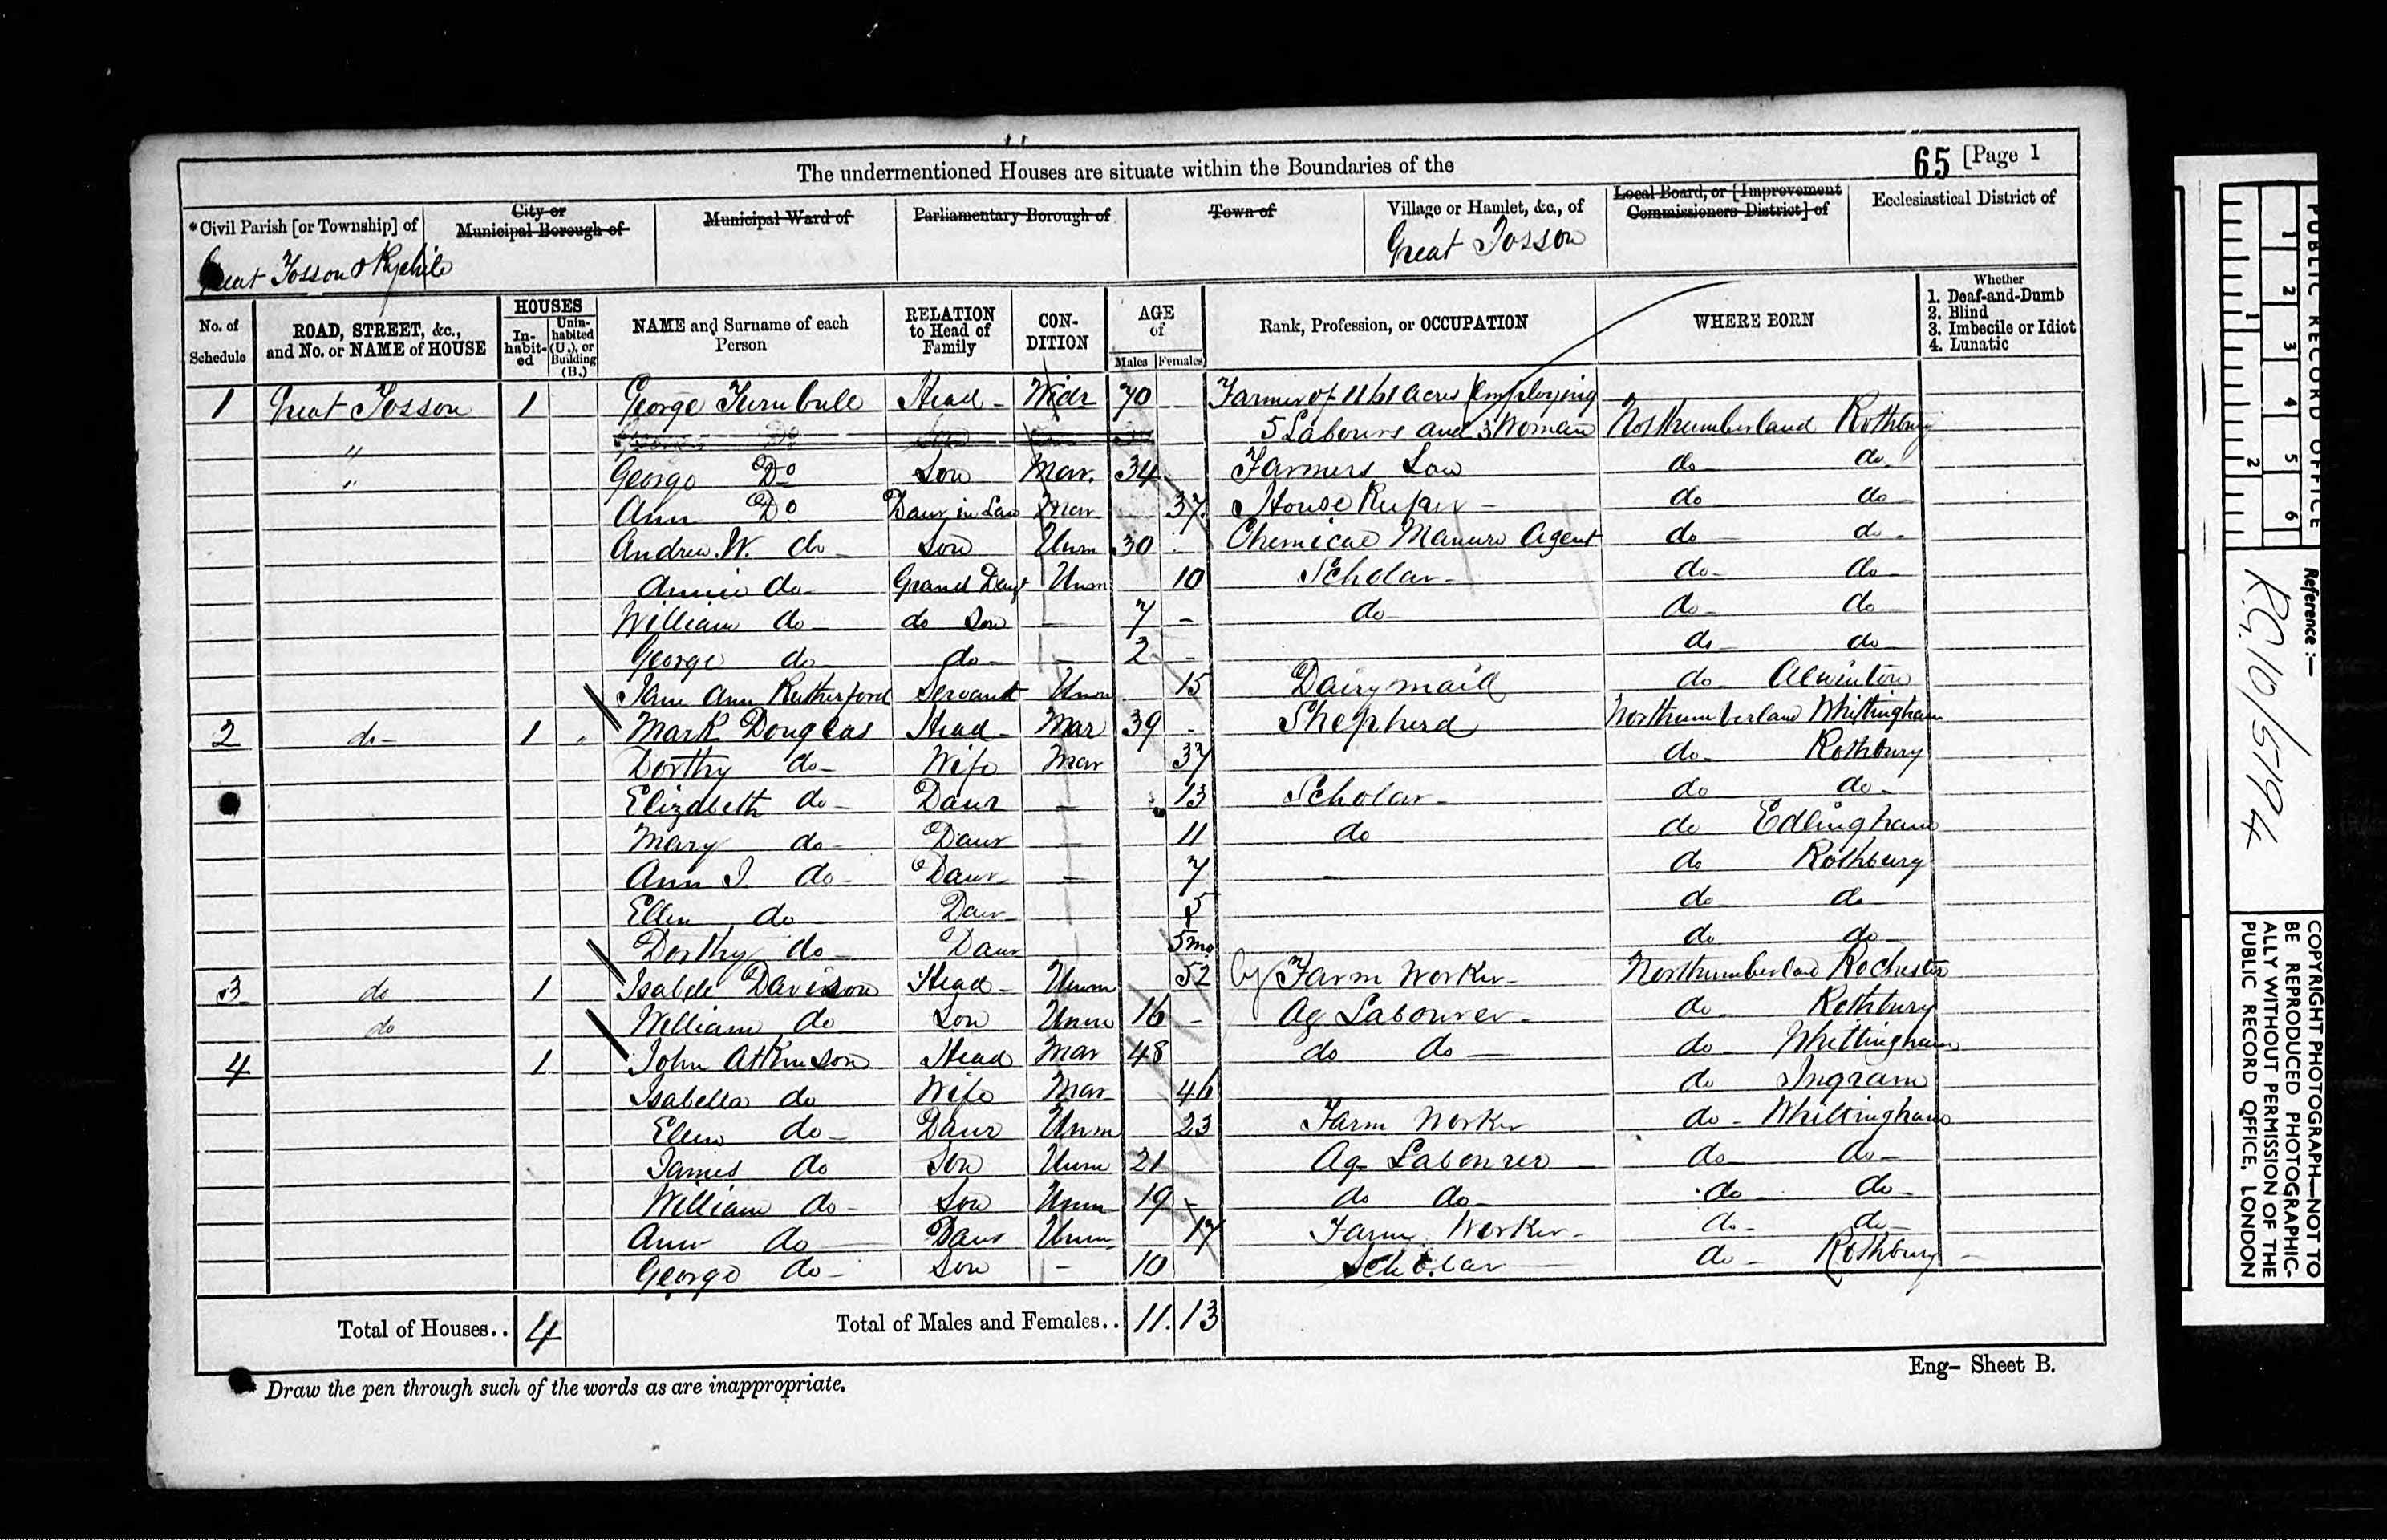 The undermentioned Houses are situate within the Boundaries of the
65 [Page 1
*Civil Parish [or Township] of
City or Municipal Borough of
Municipal Ward of
Parliamentary Borough of
Town of
Village or Hamlet, &c., of
Local Board, or [Improvement Commissioners District] of
Ecclesiastical District of
Great Tosson & Ryehile
Great Tosson
No. of Schedule
ROAD, STREET, &c., and No. or NAME of HOUSE
HOUSES
In-habit-ed
Unin-habited (U.), or Building (B.)
NAME and Surname of each Person
RELATION to Head of Family
CON-DITION
AGE of
Males Females
Rank, Profession, or OCCUPATION
WHERE BORN
Whether
1. Deaf-and-Dumb
2. Blind
3. Imbecile or Idiot
4. Lunatic
1 Great Tosson 1 George Turnbull Head Widr 70 Farmer of acres Employing
" 5 Labours and 3 Woman Northumberland Rothbury
" George Do Son Mar. 34 Farmers Son do do
Ann Do Daur in Law Mar 37 House Keeper do do
Andrew. W. do Son Unm 30 Chemical Manure Agent do do
Annie do Grand Daugt Unm 10 Scholar do do
William do do Son 7 do do do
George do do 2 do do
Jane Ann Rutherford Servant Unm 15 Dairymaid do Alwinton
2 do 1 Mark Douglas Head Mar 39 Shepherd Northumberland Whittingham
Dorthy do Wife Mar 37 do Rothbury
Elizabeth do Daur 13 Scholar do do
Mary do Daur 11 do do Edlingham
Ann I. do Daur 7 do Rothbury
Ellen do Daur 5 do do
Dorthy do Daur 5mo do do
3 do 1 Isabele Davison Head Unm 52 Farm Worker Northumberland Rochester
do William do Son Unm 16 Ag Labourer do Rothbury
4 1 John Atkinson Head Mar 48 do do do Whittingham
Isabella do Wife Mar 46 do Ingram
Ellen do Daur Unm 23 Farm Worker do Whittingham
James do Son Unm 21 Ag Labourer do do
William do Son Unm 19 do do do do
Ann do Daur Unm 17 Farm Worker do do
George do Son 10 Scholar do Rothbury
Total of Houses.. 4
Total of Males and Females.. 11. 13
Eng- Sheet B.
* Draw the pen through such of the words as are inappropriate.
PUBLIC RECORD OFFICE
1 2 3 4 5 6
1 2
Reference :—
R.G. 10/5194
COPYRIGHT PHOTOGRAPH—NOT TO
BE REPRODUCED PHOTOGRAPHIC-
ALLY WITHOUT PERMISSION OF THE
PUBLIC RECORD OFFICE, LONDON